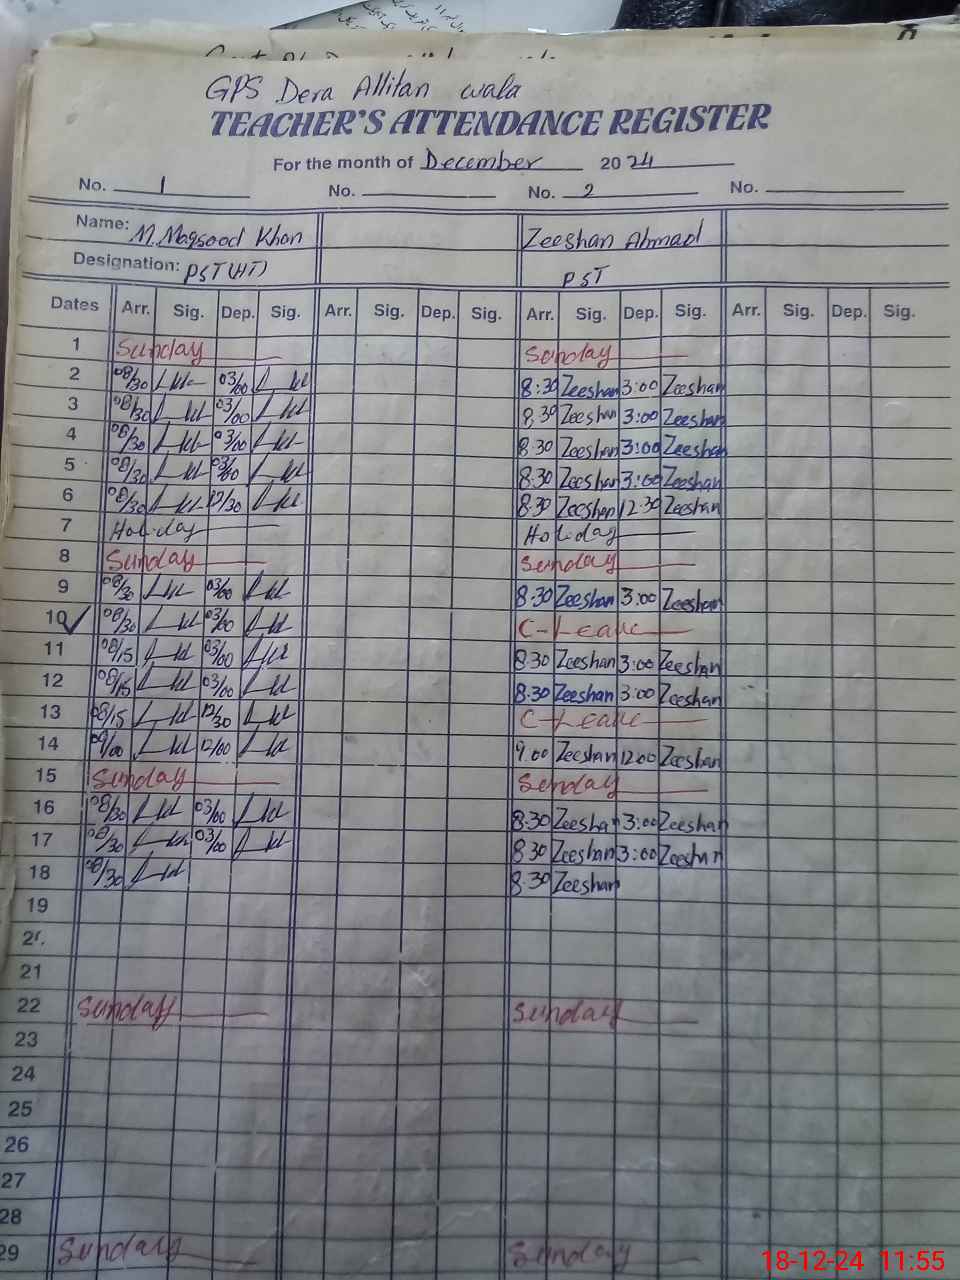 GPS Dera Allitan wala
TEACHER'S ATTENDANCE REGISTER
For the month of December 2024
No. 1 No. No. 2 No.
Name: M. Maqsood Khan Zeeshan Ahmad
Designation: PST(HT) PST
Dates Arr. Sig. Dep. Sig. Arr. Sig. Dep. Sig. Arr. Sig. Dep. Sig. Arr. Sig. Dep. Sig.
1 Sunday Sunday
2 08/30 03/00 8:30 Zeeshan 3:00 Zeeshan
3 08/30 03/00 8.30 Zeeshan 3:00 Zeeshan
4 08/30 03/00 8.30 Zeeshan 3:00 Zeeshan
5 08/30 03/00 8.30 Zeeshan 3:00 Zeeshan
6 08/30 12/30 8.30 Zeeshan 12:30 Zeeshan
7 Holiday Holiday
8 Sunday Sunday
9 08/30 03/00 8.30 Zeeshan 3:00 Zeeshan
10 08/30 03/00 C-Leave
11 08/15 03/00 8.30 Zeeshan 3:00 Zeeshan
12 08/15 03/00 8.30 Zeeshan 3:00 Zeeshan
13 08/15 12/30 C-Leave
14 09/00 12/00 9.00 Zeeshan 12:00 Zeeshan
15 Sunday Sunday
16 08/30 03/00 8.30 Zeeshan 3:00 Zeeshan
17 08/30 03/00 8.30 Zeeshan 3:00 Zeeshan
18 08/30 8.30 Zeeshan
19
21
22 Sunday Sunday
23
24
25
26
27
28
29 Sunday Sunday
18-12-24 11:55